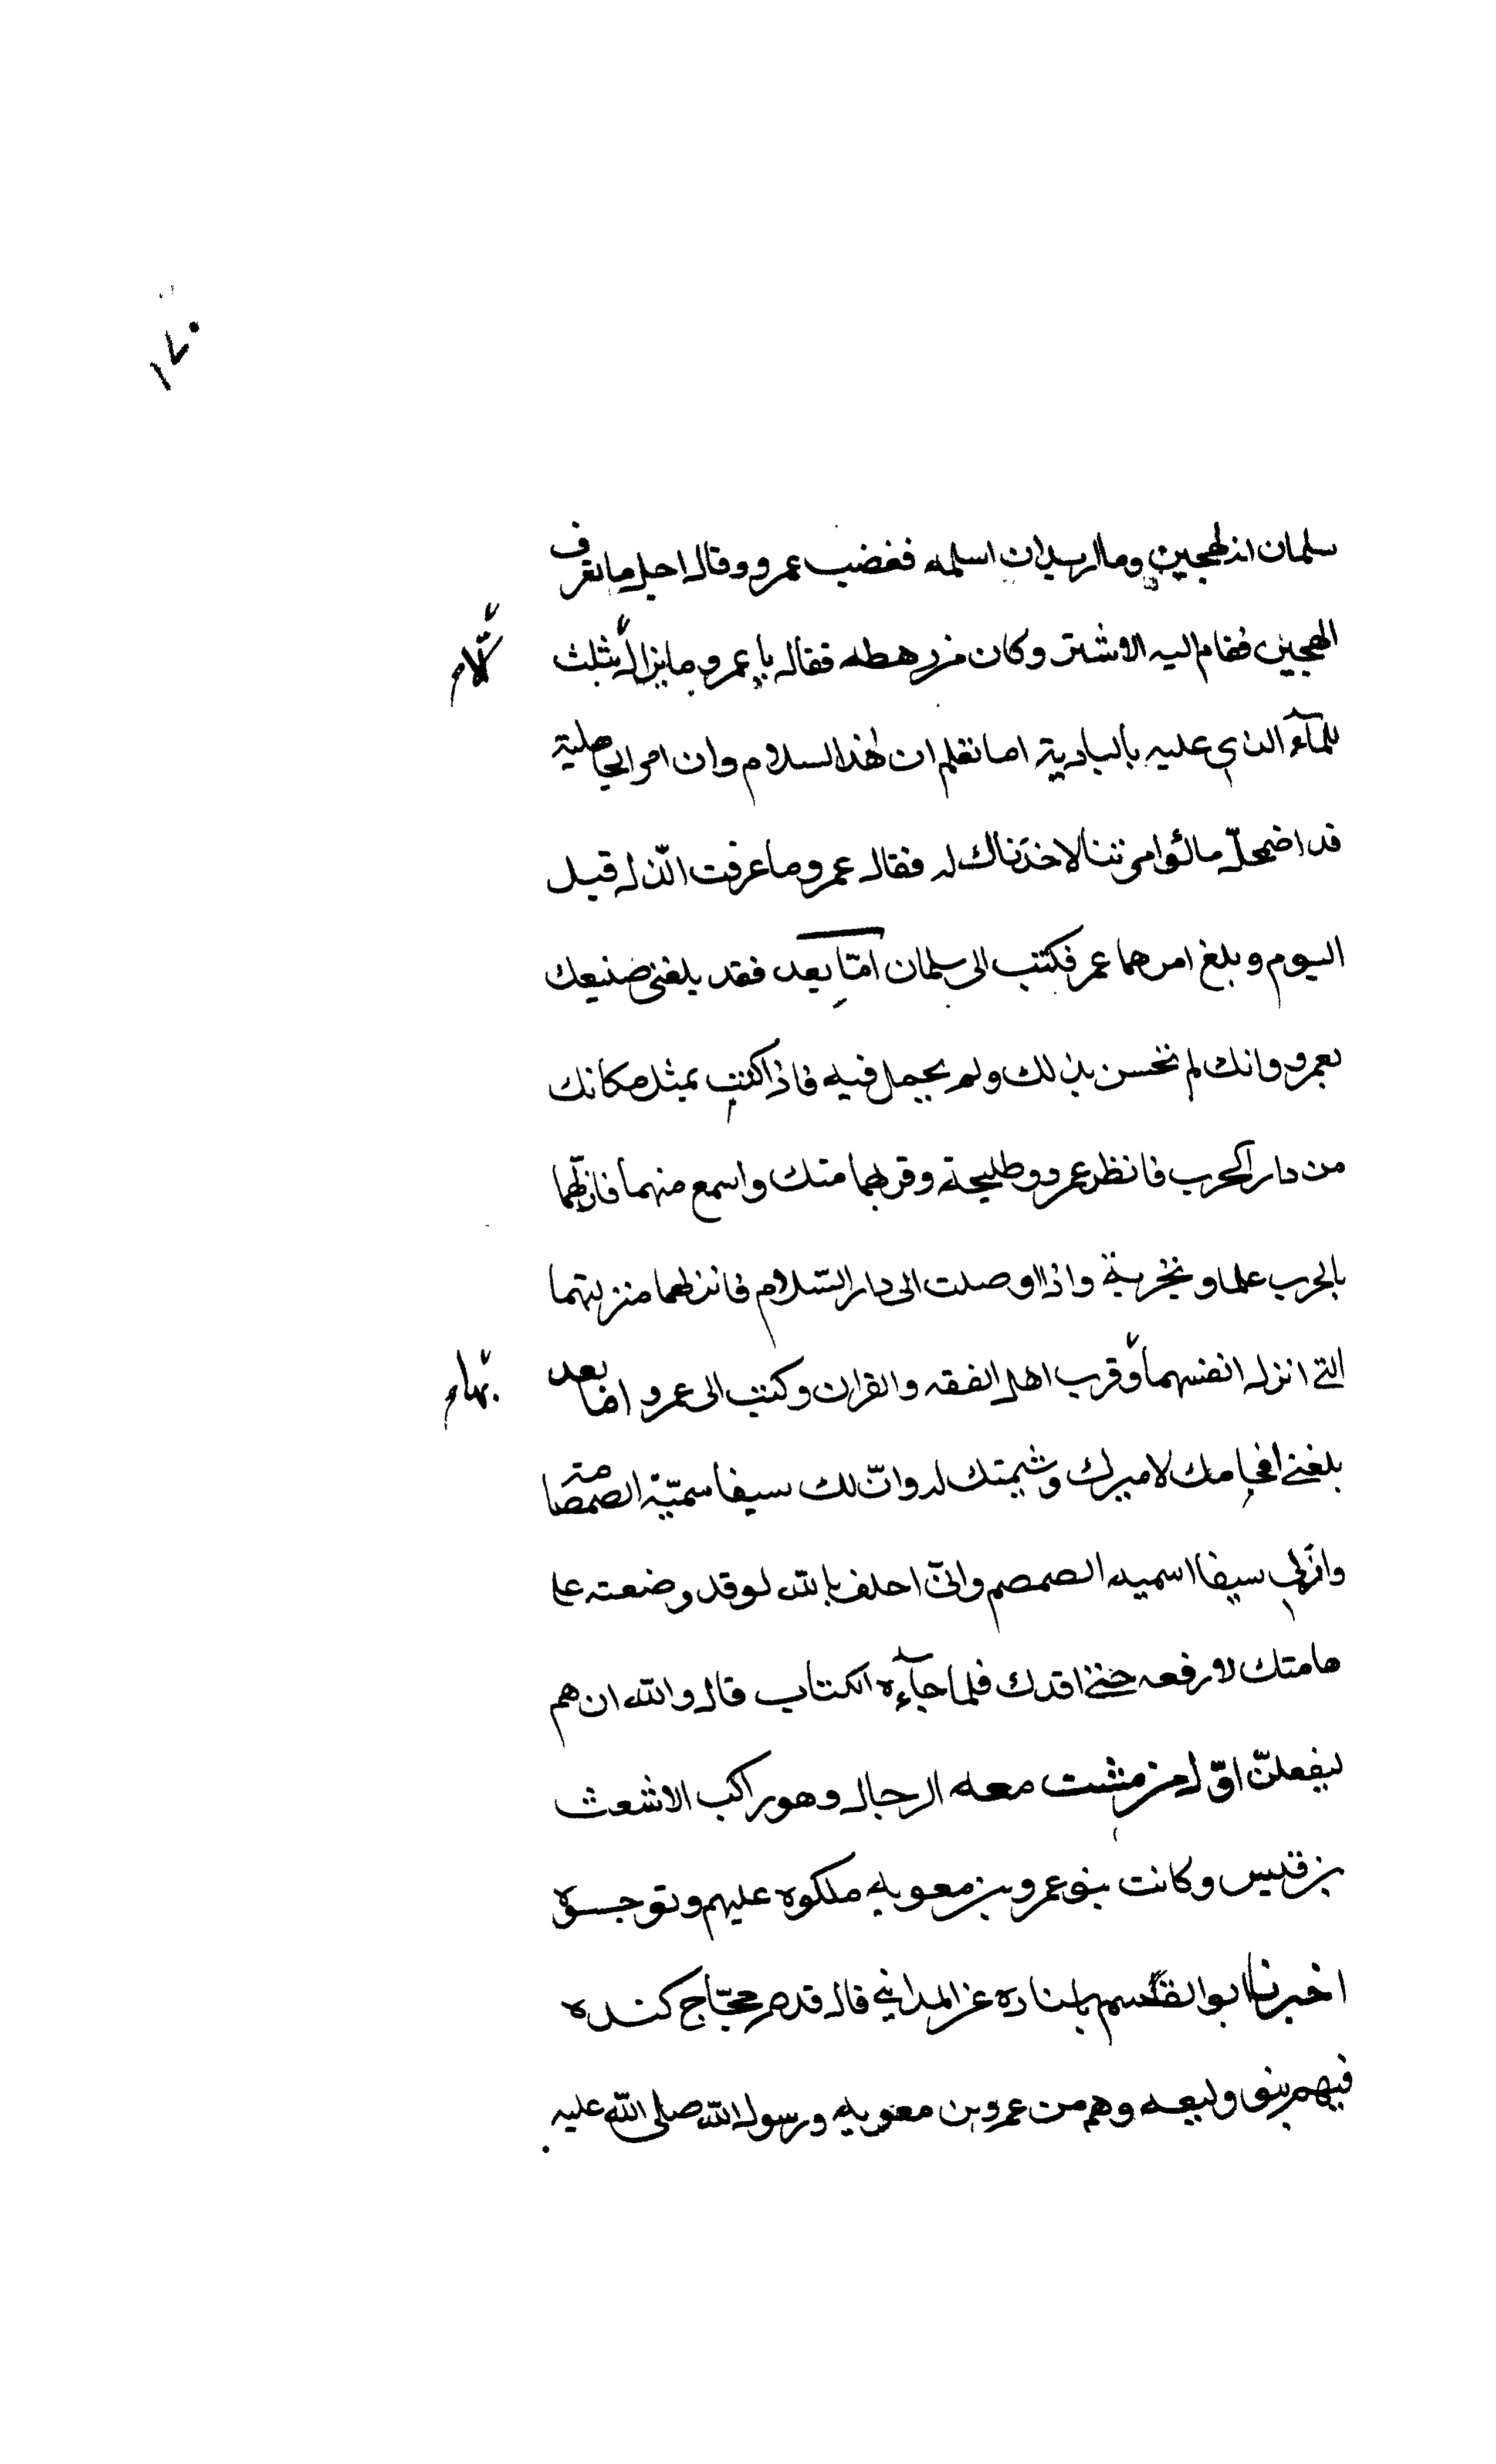 ١٧٠
سلمان انه لهجين وما اريد ان اسلمه فغضب عمرو وقال احل ما تعرف
الهجين فقام اليه الاشتر وكان من رهطه فقال يا عمرو ما يزال يثلث
للمآء الذي عليه بالبادية اما تعلم ان هذا السلام وان امر الجاهلية
قد اضمحلّ مالوامرتنا لاخذناك له فقال عمرو ما عرفت الذل قبل
اليوم وبلغ امرهما عمر فكتب الى سلمان امّا بعد فقد بلغني صنيعك
بعمرو وانك لم تحسن بذلك ولم يجمل فيه فاذا كنت بمثل مكانك
من دار الحرب فانظر عمرو وطليحة وقربهما منك واسمع منهما فان لهما
بالحرب علما وتجربة واذا وصلت الى دار السّلام فانزلهما منزلتهما
التي انزل انفسهما وقرب اهل الفقه والقران وكتب الى عمرو اما بعد
بلغني افحامك لاميرك وشيمتك له وانّ لك سيفا سميّة الصمصامة
وان لي سيفا اسميه الصمصم وانّي احلف بالله لو قد وضعته على
هامتك لا رفعه حتى اقدك فلما جآءه الكتاب قال والله ان هم
ليفعلنّ اوّل من مشت معه الرجال وهو راكب الاشعث
بن قيس وكانت بنو عمرو بن معويه ملكوه عليهم وتوجوه
اخبرنا ابو القاسم باسناده عن المدايني قال قدم حجّاج كنده
فيهم بنو وليعه وهم من عمرو بن معويه ورسول الله صلى الله عليه